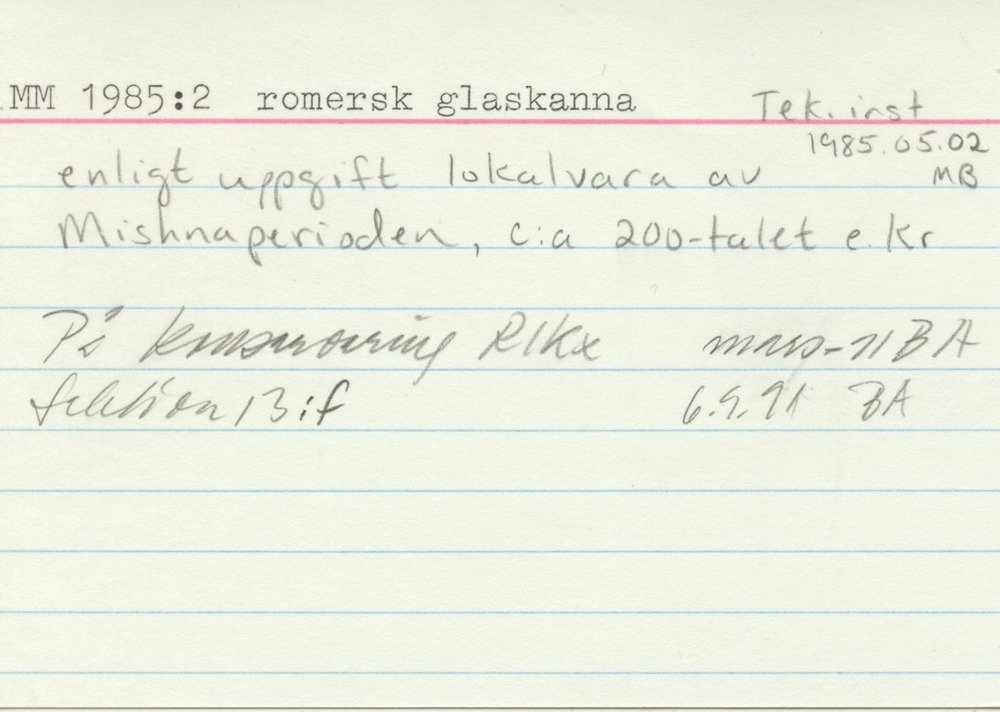 MM 1985:2 romersk glaskanna Tek. inst
1985.05.02
enligt uppgift lokalvara av MB
Mishnaperioden, c:a 200-talet e. kr
På konservering RIKx mars-91 BA
Sektion 13:f 6.9.91 BA